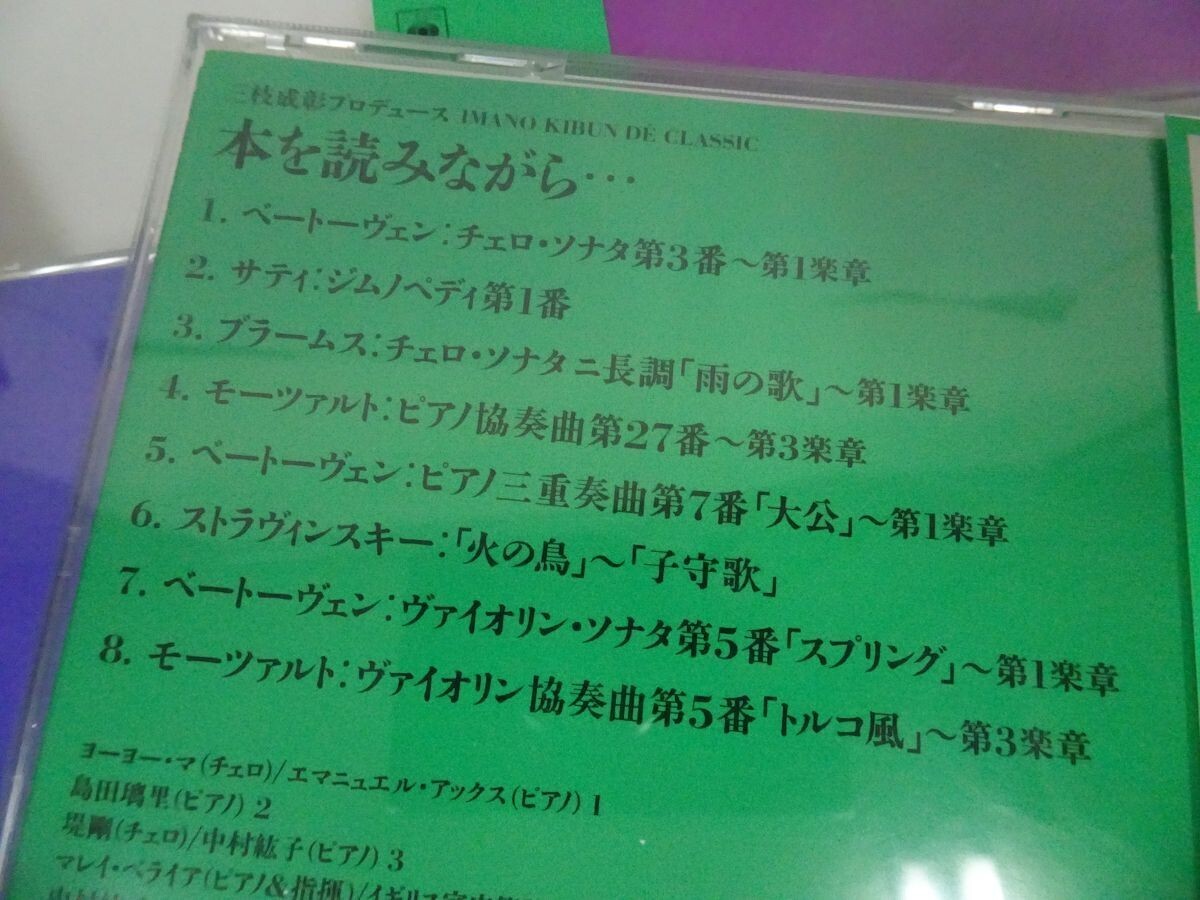 三枝成彰プロデュース IMANO KIBUN DE CLASSIC
本を読みながら…
1. ベートーヴェン:チェロ・ソナタ第3番～第1楽章
2. サティ:ジムノペディ第1番
3. ブラームス:チェロ・ソナタニ長調「雨の歌」～第1楽章
4. モーツァルト:ピアノ協奏曲第27番～第3楽章
5. ベートーヴェン:ピアノ三重奏曲第7番「大公」～第1楽章
6. ストラヴィンスキー:「火の鳥」～「子守歌」
7. ベートーヴェン:ヴァイオリン・ソナタ第5番「スプリング」～第1楽章
8. モーツァルト:ヴァイオリン協奏曲第5番「トルコ風」～第3楽章
ヨーヨー・マ(チェロ)/エマニュエル・アックス(ピアノ) 1
島田璃里(ピアノ) 2
堤剛(チェロ)/中村紘子(ピアノ) 3
マレイ・ペライア(ピアノ&指揮)/イギリス